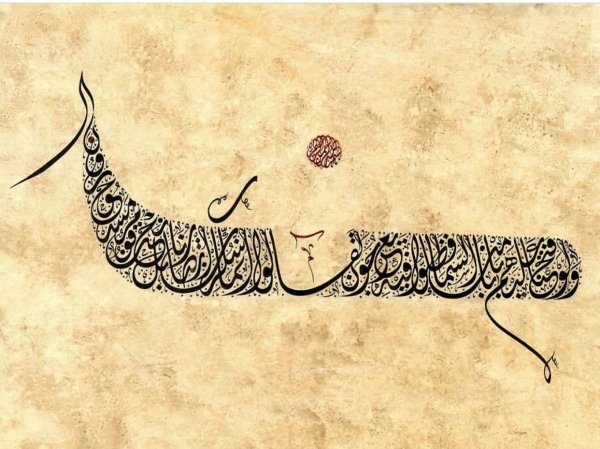 ولو فتحنا عليهم بابا من السماء فظلوا فيه يعرجون لقالوا إنما سكرت أبصارنا بل نحن قوم مسحورون